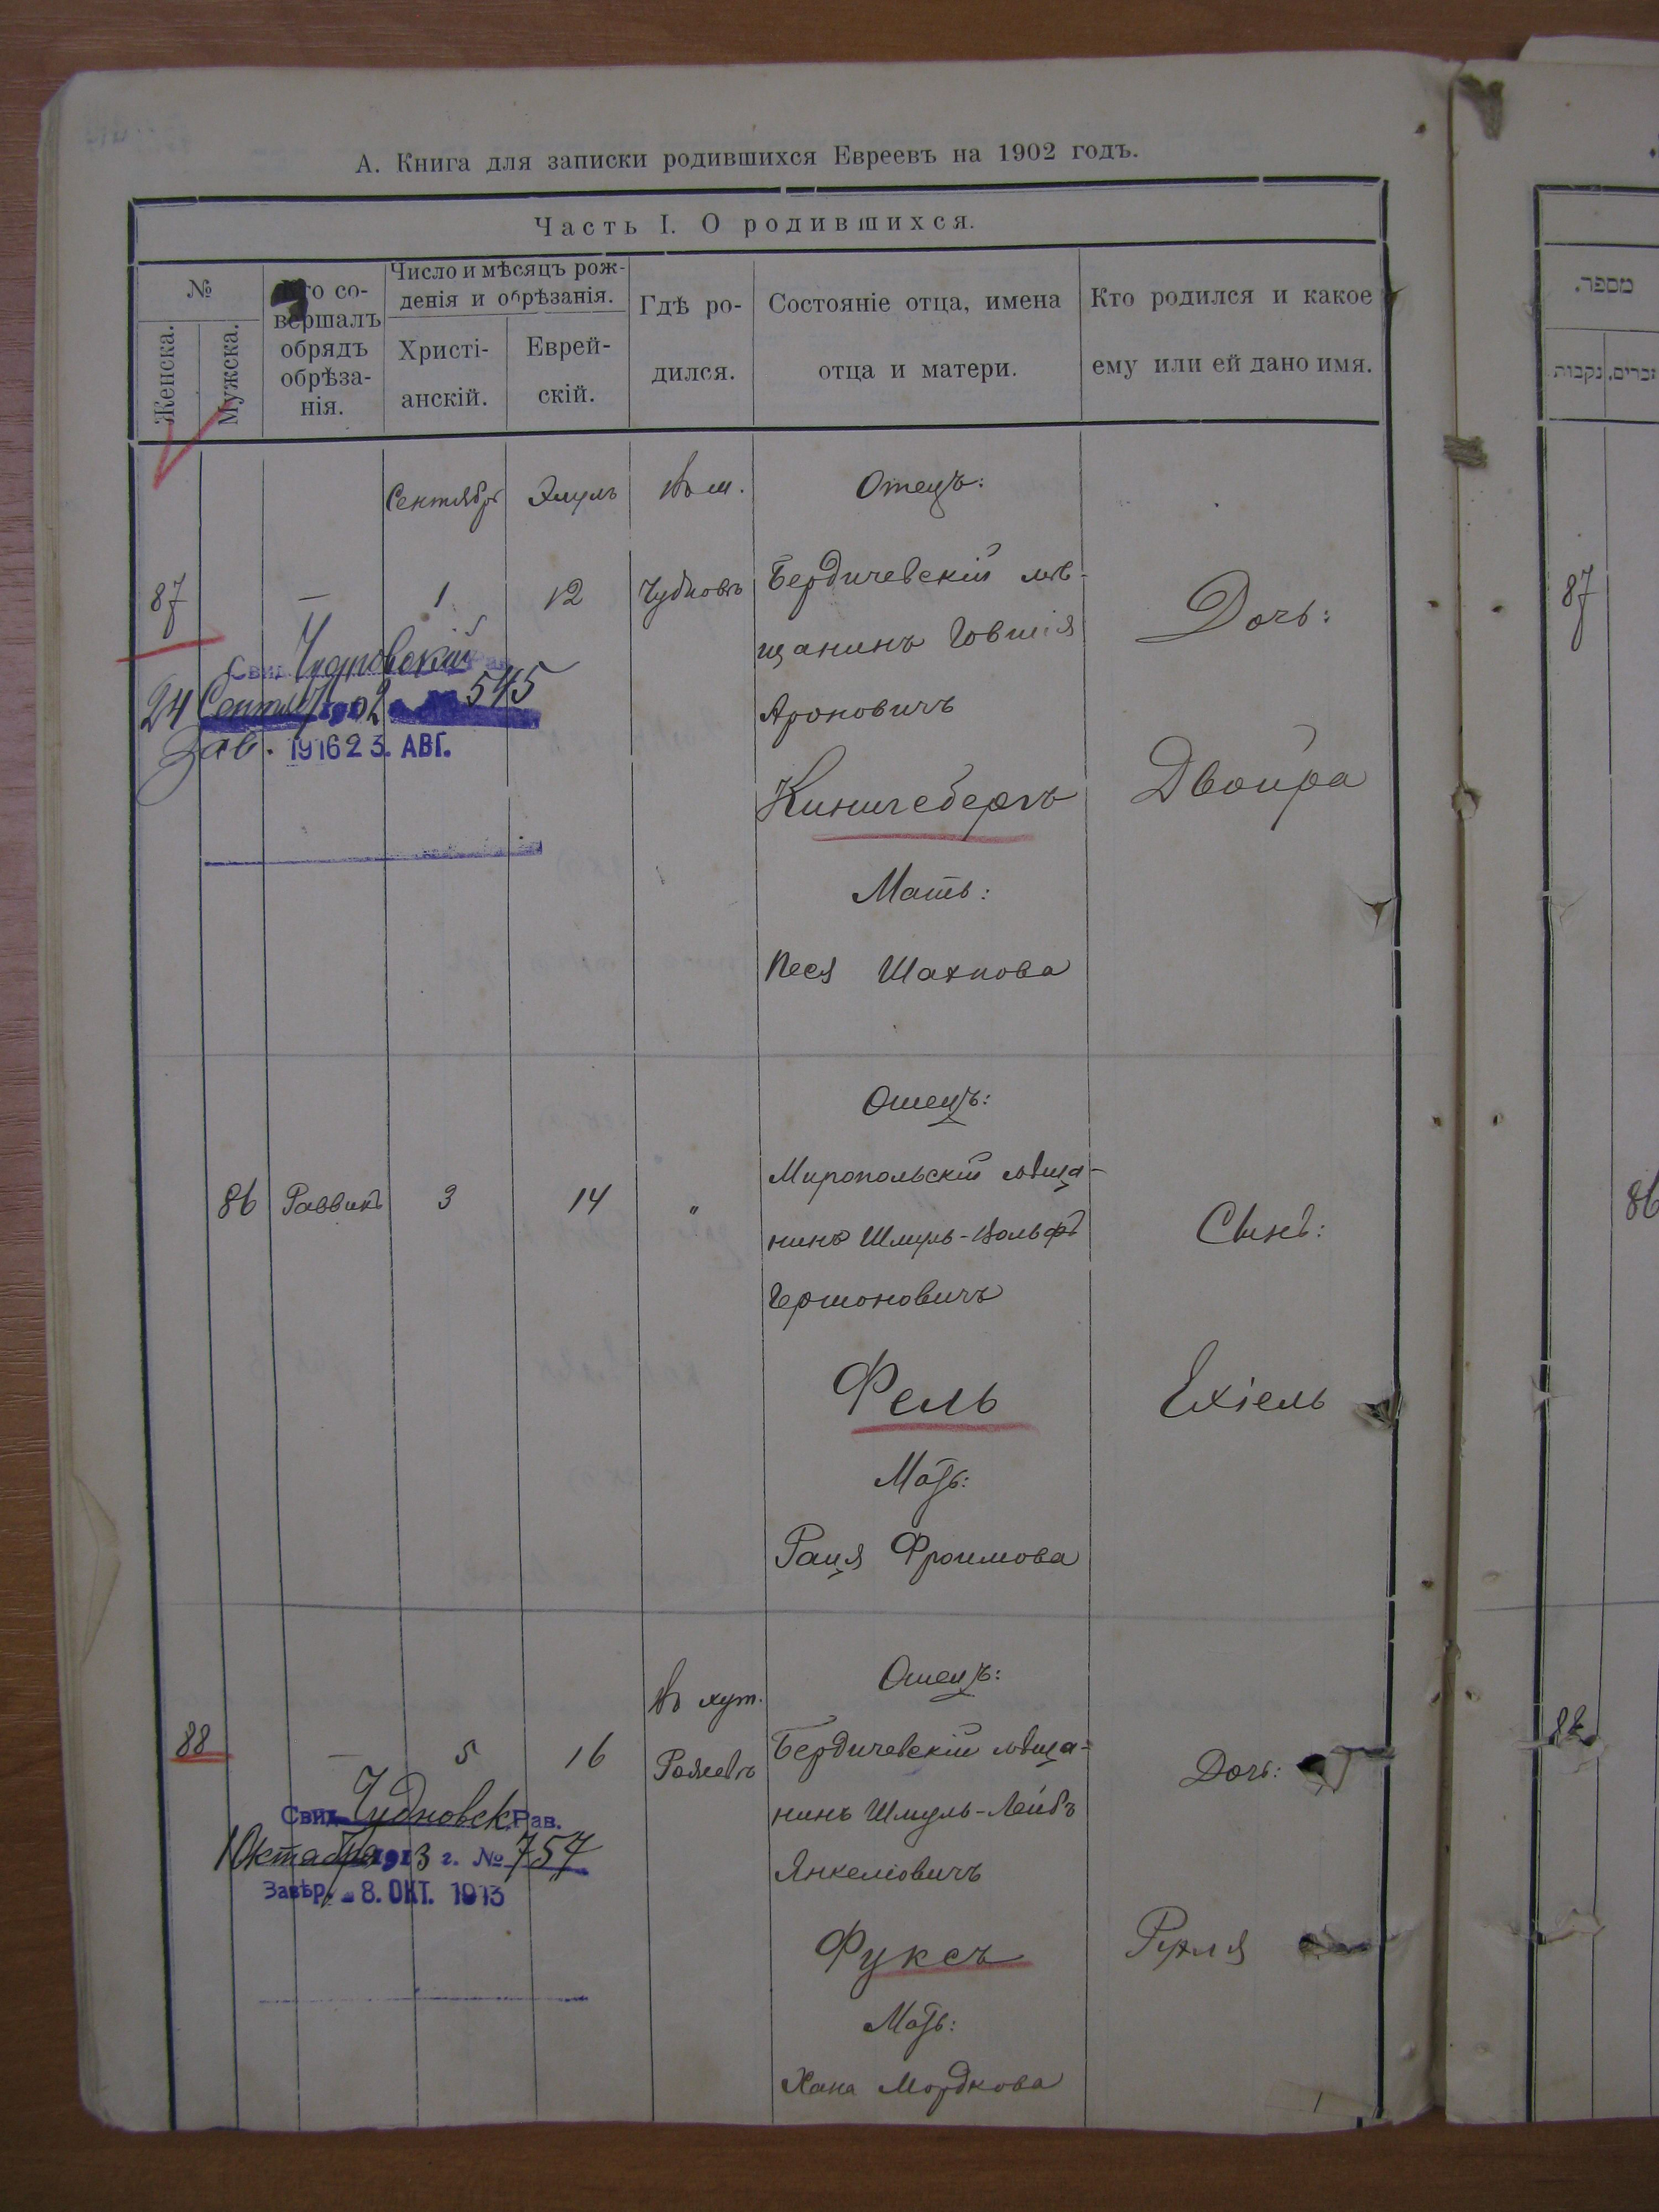 А. Книга для записки родившихся Евреевъ на 1902 годъ.
Часть I. О родившихся.
№
Женска.
Мужска.
Кто со-
вершалъ
обрядъ
обрѣза-
нія.
Число и мѣсяцъ рож-
денія и обрѣзанія.
Христі-
анскій.
Еврей-
скій.
Гдѣ ро-
дился.
Состояніе отца, имена
отца и матери.
Кто родился и какое
ему или ей дано имя.
מספר.
זכרים. נקבות
Сентябрь Элулъ въ м. Отецъ:
87 — 1 12 Чудновъ Бердичевскій мѣ-
щанинъ Іовшія
Ароновичъ
Дочь:
Свид. Чудновскій Рав.
24 Сентяб 1902 № 545
Зав. 1916 23. АВГ.
Двойра
Мать:
Песя Шахнова
87
Отецъ:
86 Раввинъ 3 14 " Миропольскій мѣща-
нинъ Шмуль-Вольфъ
Гершоновичъ
Сынъ:
Фель
Ехіель
Мать:
Раця Фроимова
86
Отецъ:
88 — 5 16 въ хут. Бердичевскій мѣща-
нинъ Шмуль-Лейбъ
Янкелiовичъ
Дочь:
Свид. Чудновск. Рав.
1 Октября 1913 г. № 757
Завѣр. 8. ОКТ. 1913
Фуксъ
Рухля
Мать:
Хана Мордкова
88